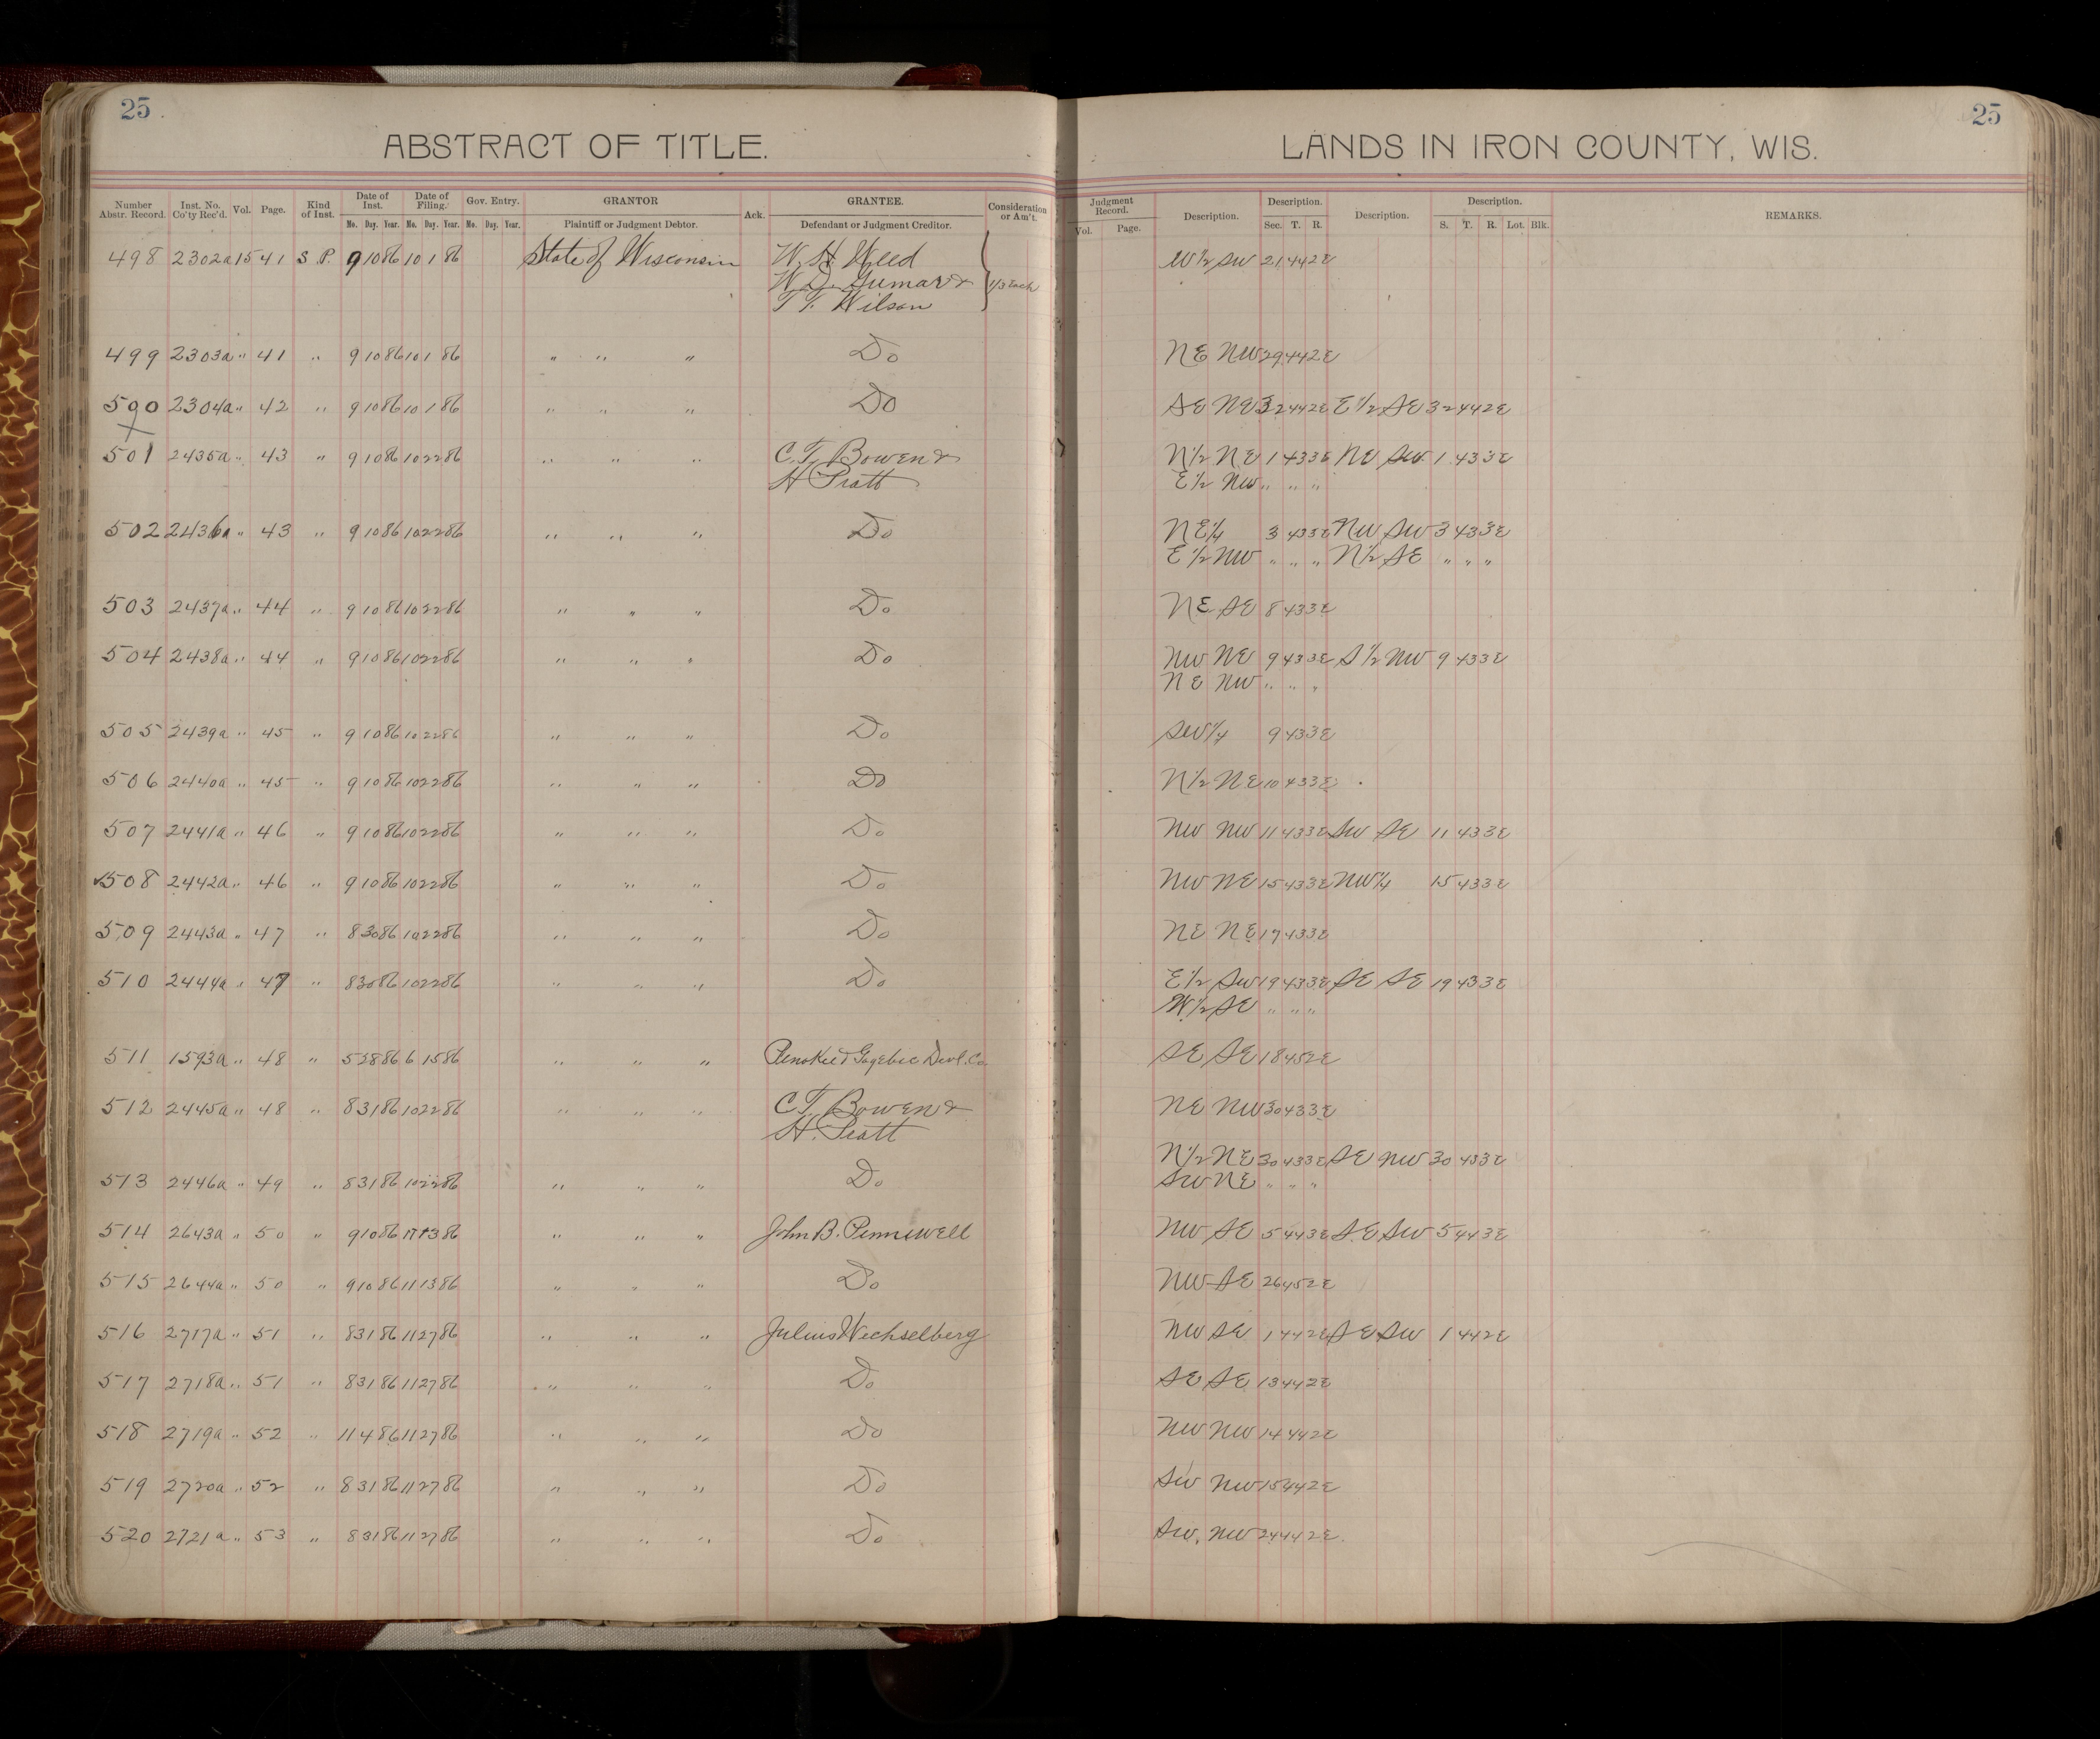 25
25
ABSTRACT OF TITLE.
LANDS IN IRON COUNTY, WIS.
Number Abstr. Record. Inst. No. Co'ty Rec'd. Vol. Page. Kind of Inst. Date of Inst. Mo. Day. Year. Date of Filing. Mo. Day. Year. Gov. Entry. Mo. Day. Year. GRANTOR Plaintiff or Judgment Debtor. Ack. GRANTEE. Defendant or Judgment Creditor. Consideration or Am't. Judgment Record. Vol. Page. Description. Description. Sec. T. R. Description. Description. S. T. R. Lot. Blk. REMARKS.
498 2302a 15 41 S. P. 9 10 86 10 1 86 State of Wisconsin W. H. Weed 1/3 Each W½ SW 21 44 2E
W. D. &
T. F. Wilson
499 2303a " 41 " 9 10 86 10 1 86 " " " Do NE NW 29 44 2E
500 2304a " 42 " 9 10 86 10 1 86 " " " Do SE NE 32 44 2E E½ SE 32 44 2E
501 2435a " 43 " 9 10 86 10 22 86 " " " C. T. Bowen & N½ NE 1 43 3E NE SW 1 43 3E
H Pratt E½ NW " " "
502 2436a " 43 " 9 10 86 10 22 86 " " " Do NE¼ 3 43 3E NW SW 3 43 3E
E½ NW " " " N½ SE " " "
503 2437a " 44 " 9 10 86 10 22 86 " " " Do NE SE 8 43 3E
504 2438a " 44 " 9 10 86 10 22 86 " " " Do NW NE 9 43 3E S½ NW 9 43 3E
NE NW " " "
505 2439a " 45 " 9 10 86 10 22 86 " " " Do SW¼ 9 43 3E
506 2440a " 45 " 9 10 86 10 22 86 " " " Do N½ NE 10 43 3E
507 2441a " 46 " 9 10 86 10 22 86 " " " Do NW NW 11 43 3E SW SE 11 43 3E
508 2442a " 46 " 9 10 86 10 22 86 " " " Do NW NE 15 43 3E NW¼ 15 43 3E
509 2443a " 47 " 8 30 86 10 22 86 " " " Do NE NE 17 43 3E
510 2444a " 47 " 8 30 86 10 22 86 " " " Do E½ SW 19 43 3E SE SE 19 43 3E
W½ SE " " "
511 1593a " 48 " 5 28 86 6 15 86 " " " Penokee & Gogebic Devl. Co. SE SE 18 45 2E
512 2445a " 48 " 8 31 86 10 22 86 " " " C. T. Bowen & NE NW 30 43 3E
H. Pratt
N½ NE 30 43 3E SE NW 30 43 3E
513 2446a " 49 " 8 31 86 10 22 86 " " " Do SW NE " " "
514 2643a " 50 " 9 10 86 11 13 86 " " " John B. Pennewell NW SE 5 44 3E SE SW 5 44 3E
515 2644a " 50 " 9 10 86 11 13 86 " " " Do NW SE 26 45 2E
516 2717a " 51 " 8 31 86 11 27 86 " " " Julius Wechselberg NW SE 1 44 2E SE SW 1 44 2E
517 2718a " 51 " 8 31 86 11 27 86 " " " Do SE SE 13 44 2E
518 2719a " 52 " 11 4 86 11 27 86 " " " Do NW NW 14 44 2E
519 2720a " 52 " 8 31 86 11 27 86 " " " Do SW NW 15 44 2E
520 2721a " 53 " 8 31 86 11 27 86 " " " Do SW. NW 24 44 2E.